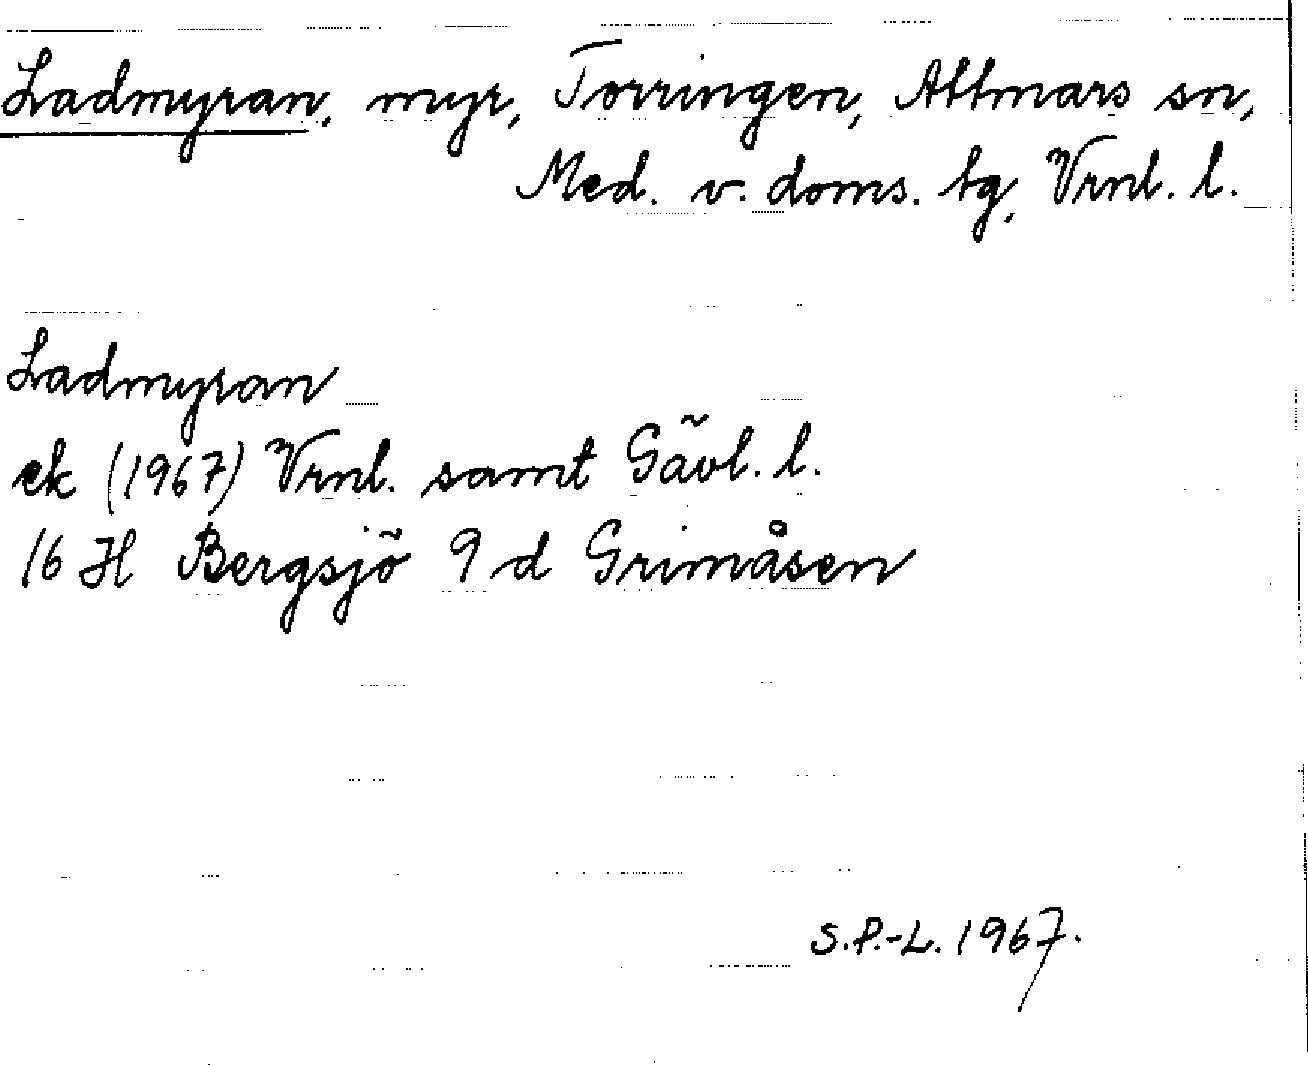 Ladmyran, myr, Torringen, Attmars sn,
Med. v. doms. tg, Vrnl. l.
Ladmyran
ek (1967) Vrnl. samt Gävl. l.
16 H Bergsjö 9 d Grimåsen
S.P.-L. 1967.